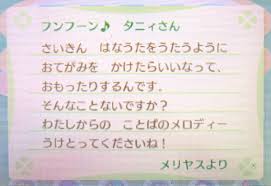 フンフーン♪　タニィさん
さいきん　はなうたをうたうように
おてがみを　かけたらいいなって、
おもったりするんです。
そんなことないですか？
わたしからの　ことばのメロディー
うけとってくださいね！
メリヤスより